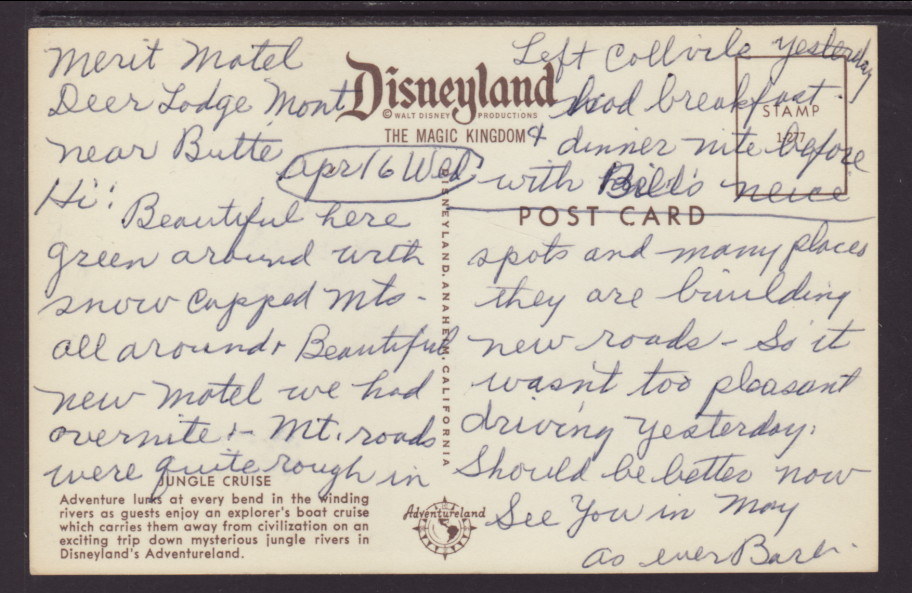 Merit Motel
Deer Lodge Mont
near Butte
Apr 16 Wed
Hi!
Beautiful here
green around with
snow capped Mts -
all around, Beautiful
new Motel we had
overnite - Mt. roads
were quite rough in
spots and many places
they are buulding
new roads - So it
wasn't too pleasant
driving yesterday.
Should be better now
See You in May
as ever Barb.
Left Collvile yesterday
had breakfast.
& dinner nite before
with Bill's neice
Disneyland
© WALT DISNEY PRODUCTIONS
THE MAGIC KINGDOM
STAMP
1-277
POST CARD
DISNEYLAND, ANAHEIM, CALIFORNIA
JUNGLE CRUISE
Adventure lurks at every bend in the winding
rivers as guests enjoy an explorer's boat cruise
which carries them away from civilization on an
exciting trip down mysterious jungle rivers in
Disneyland's Adventureland.
Adventureland